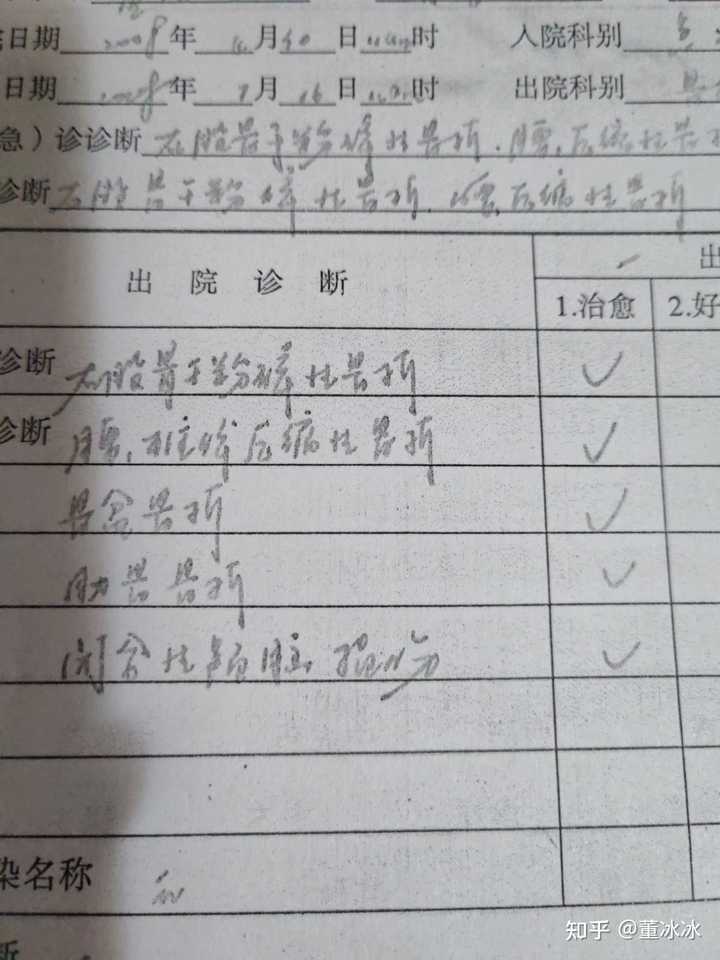 日期 2008 年 月 日 时 入院科别
日期 2008 年 7 月 16 日 时 出院科别
急）诊诊断 右股骨干粉碎性骨折．腰，压缩性骨
诊断 右股骨干粉碎性骨折．腰，压缩性骨折
出院诊断 出
1.治愈 2.好
诊断 右股骨干粉碎性骨折 ✓
诊断 腰，椎体压缩性骨折 ✓
骨盆骨折 ✓
肋骨骨折 ✓
闭合性颅脑损伤 ✓
染名称
断
知乎 @董冰冰